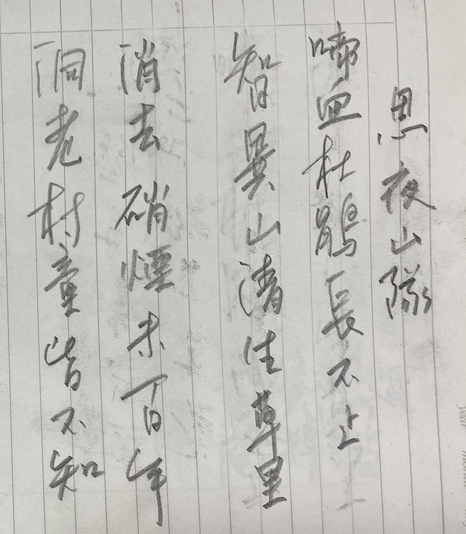 思夜山隊
啼血杜鵑長不止
智異山清生草里
消去硝煙未百年
洞老村童皆不知